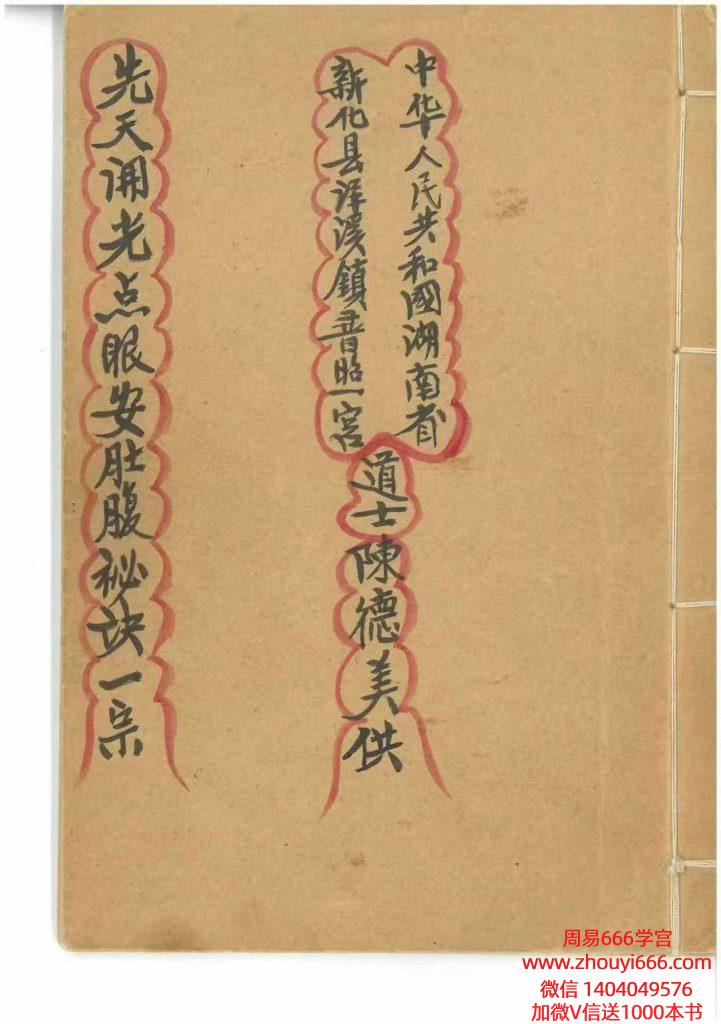 中华人民共和國湖南省
新化县洋溪鎮普照一宫
道士陳德美供
先天開光点眼安肚腹祕诀一宗
周易666学宫
www.zhouyi666.com
微信 1404049576
加微V信送1000本书